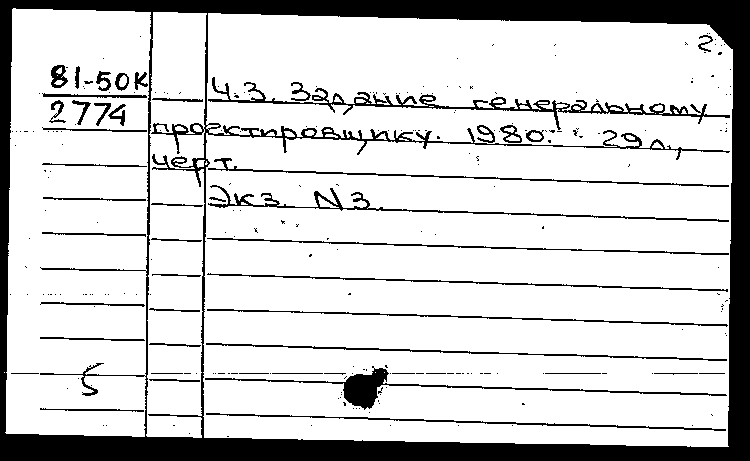 2.
81-50К
2774
Ч.3. Задание генеральному
проектировщику. 1980. 29 л.,
черт.
Экз. N3.
5